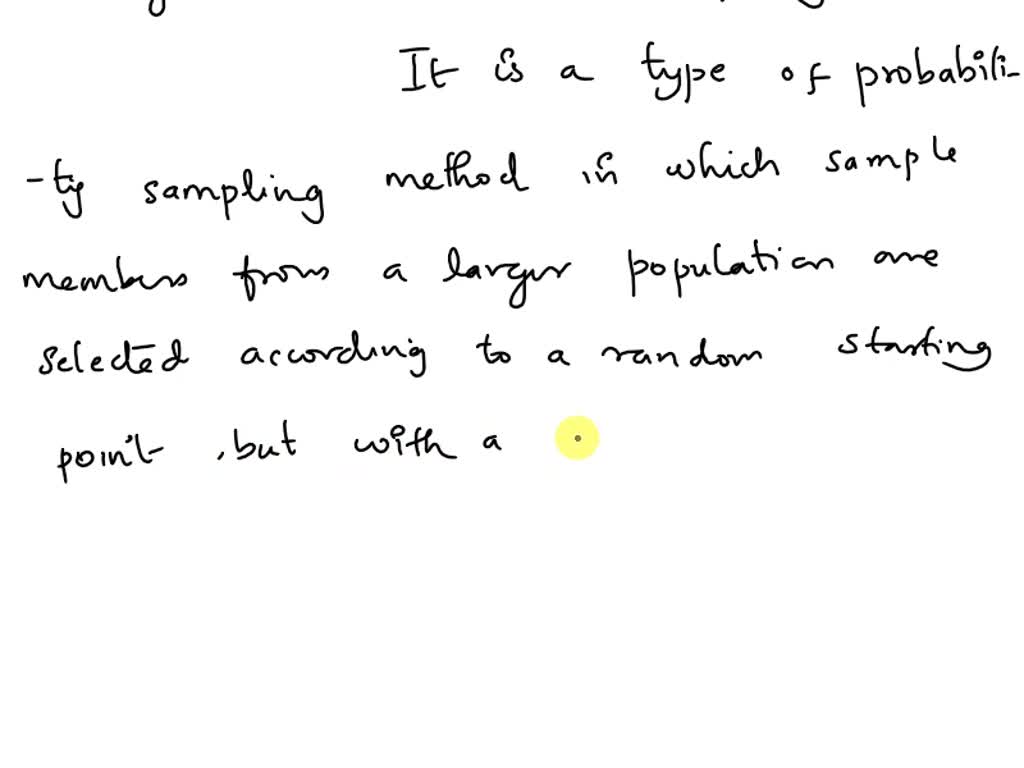 It is a type of probabili-
-ty sampling method in which sample
members from a larger population are
selected according to a random starting
point, but with a